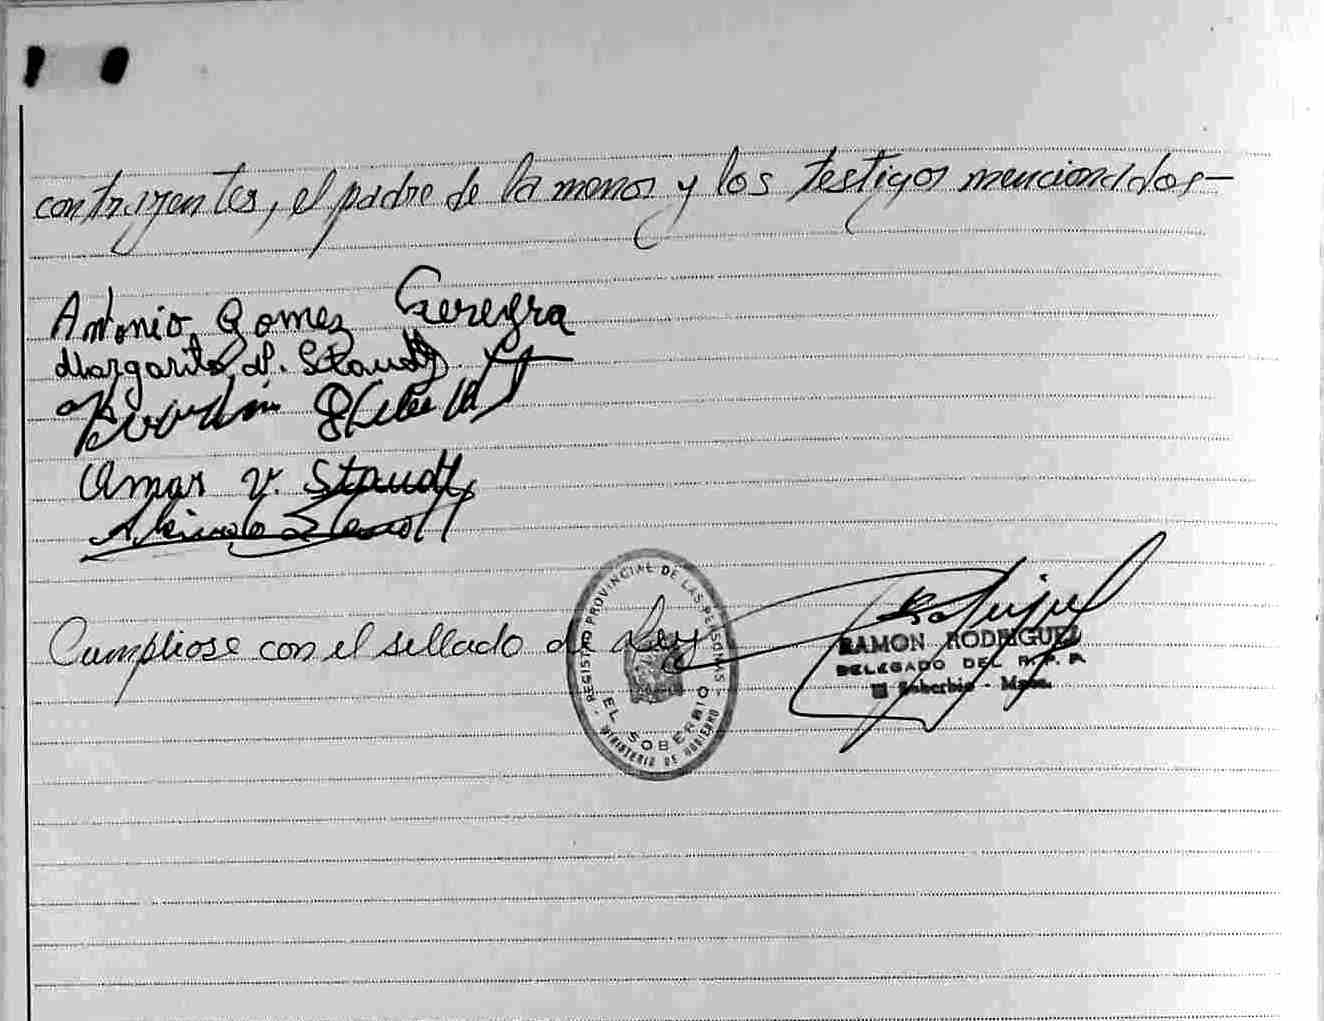 contrayentes, el padre de la menor y los testigos mencionados—
Antonio Gomez Pereyra
Margarita N. Staudt
Omar V. Staudt
Cumpliose con el sellado de Ley
REGISTRO PROVINCIAL DE LAS PERSONAS
EL SOBERBIO
MINISTERIO DE GOBIERNO
RAMON RODRIGUEZ
DELEGADO DEL R. P. P.
El Soberbio - Mnes.